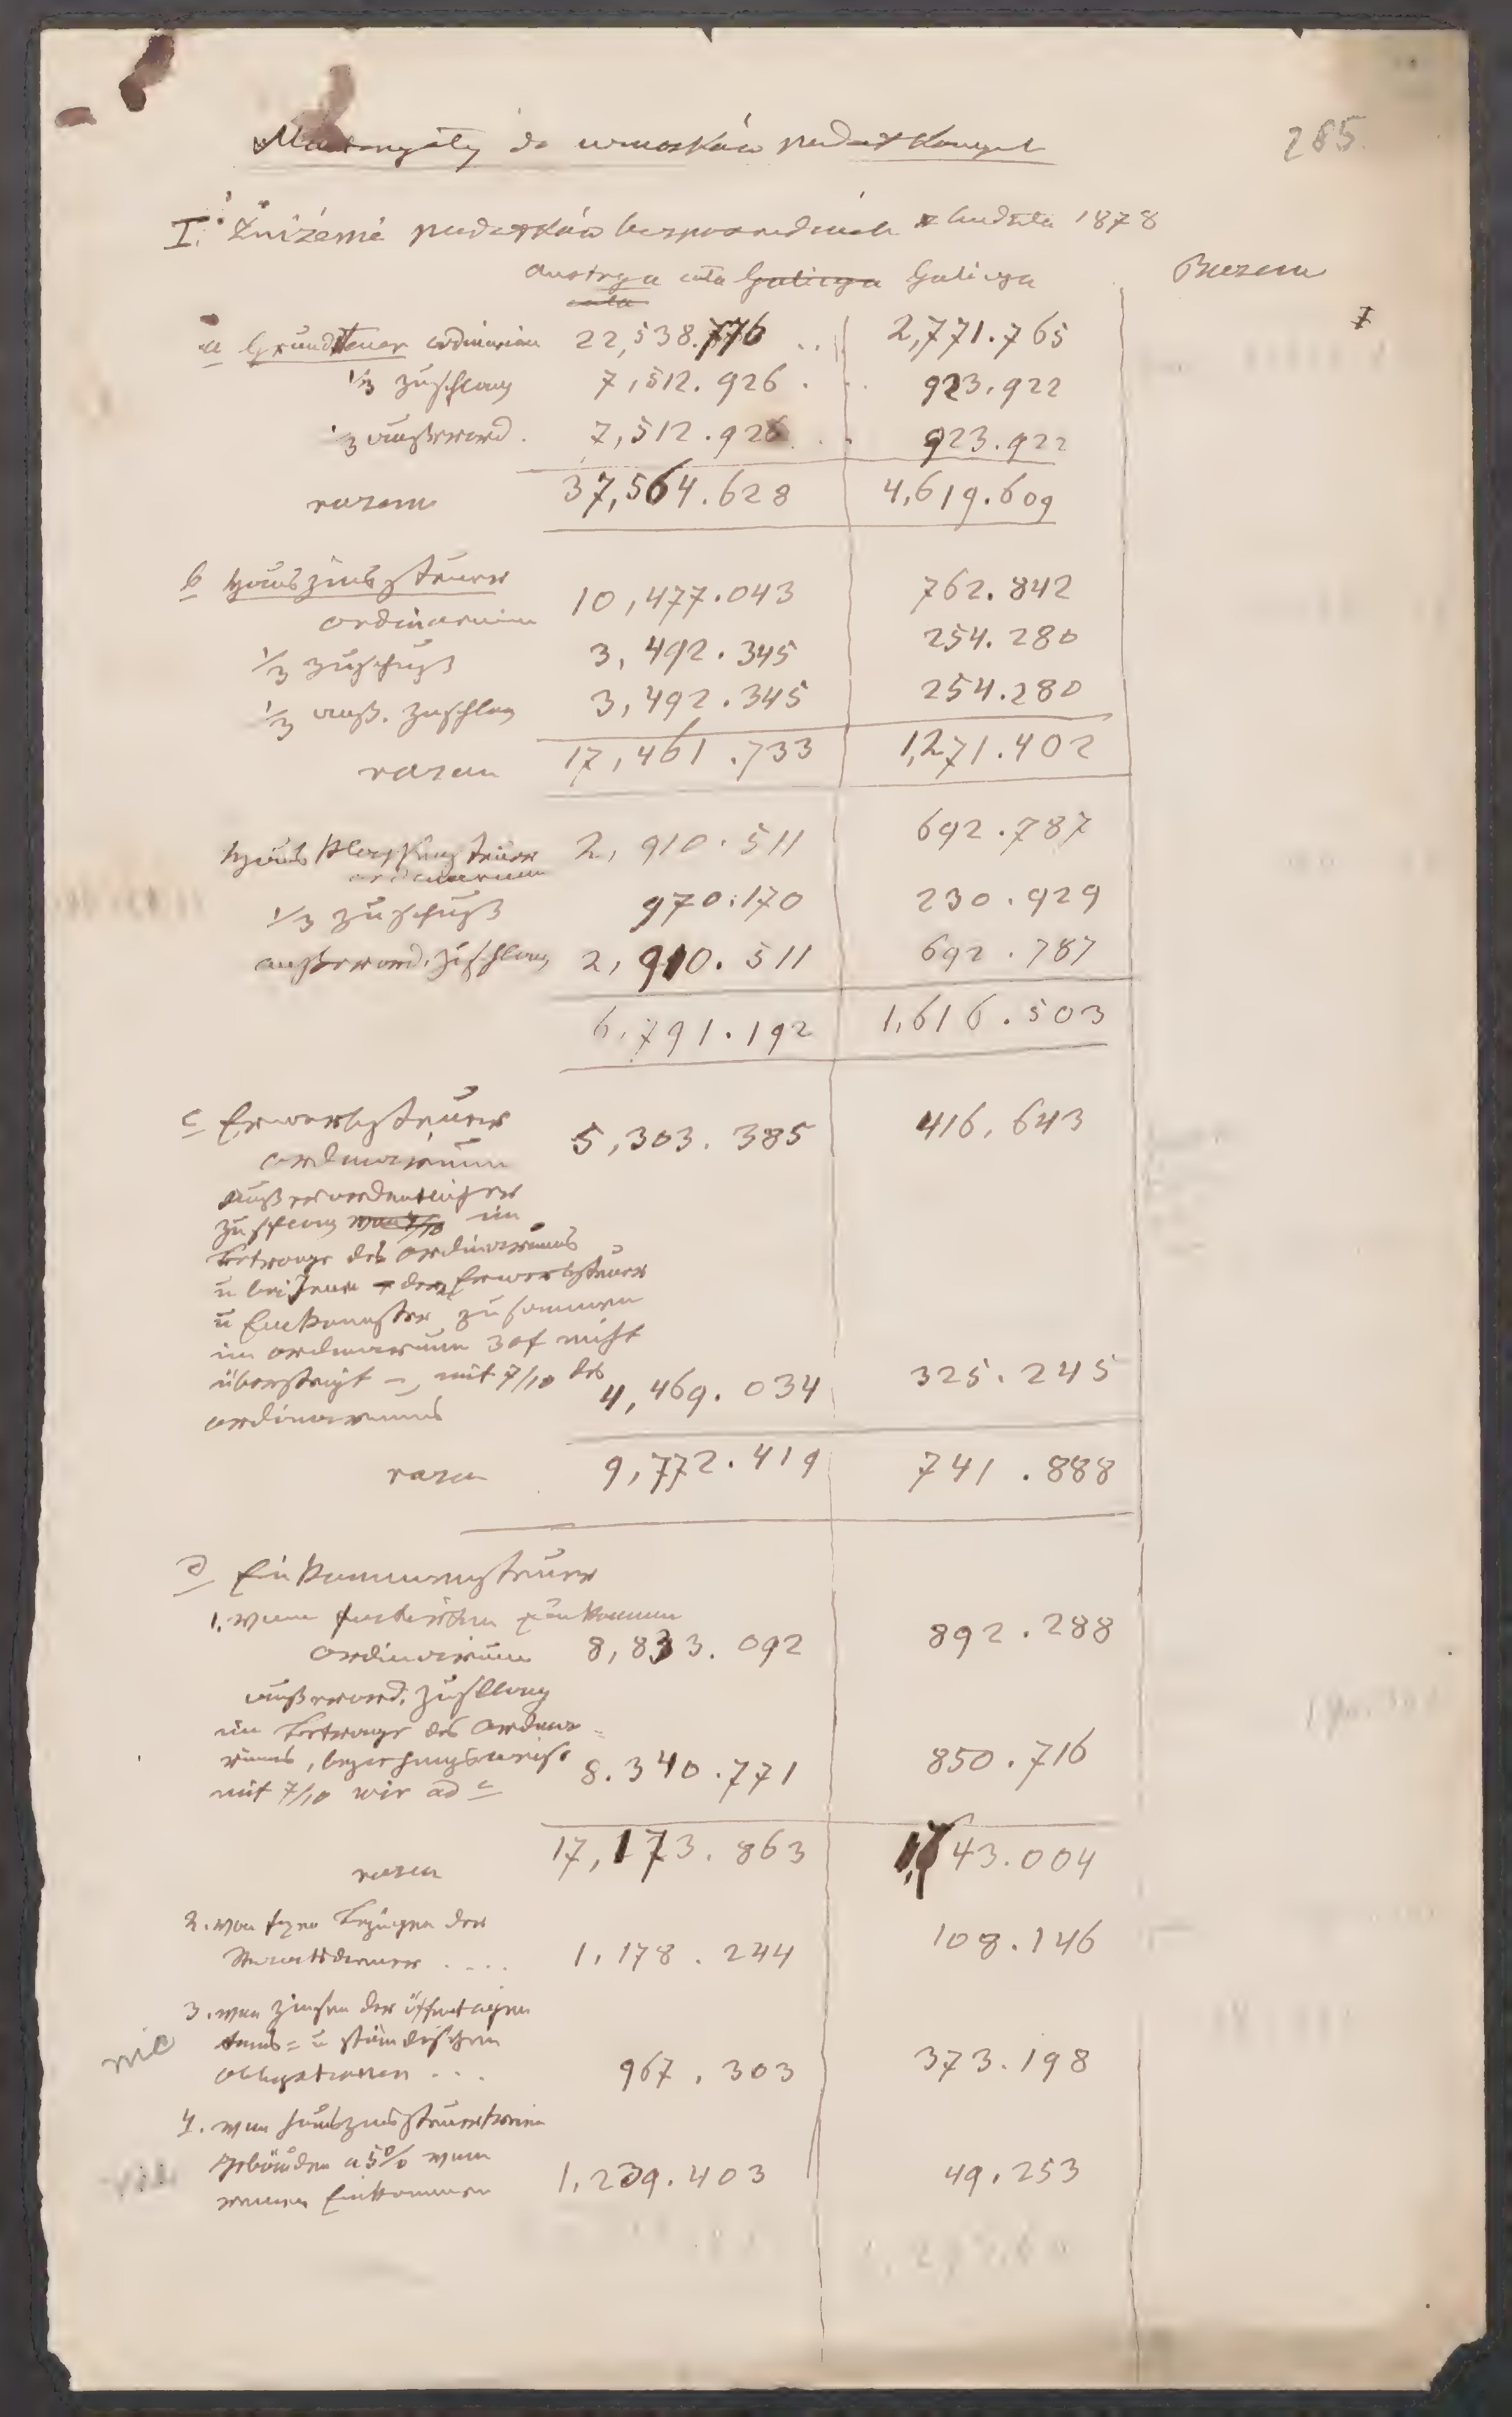 Materyały do wniosków podatkowych
285
I. Zniżenie podatków bezpośrednich z budżetu 1878
Austrya cała Galicya Galicya
cała
a Grundsteuer ordinarium 22,538.776 .. 2,771.765
1/3 Zuschlag 7,512.926 . . 923.922
1/3 außerord. 7,512.926 . . 923.922
razem 37,564.628 4,619.609
b Hauszinssteuer
ordinarium 10,477.043 762.842
1/3 Zuschuß 3,492.345 254.280
1/3 auß. Zuschlag 3,492.345 254.280
razem 17,461.733 1,271.402
Hausklassensteuer 2,910.511 692.787
ordinarium
1/3 Zuschuß 970.170 230.929
außerord. Zuschlag 2,910.511 692.787
6,791.192 1,616.503
c Erwerbsteuer
ordinarium 5,303.385 416,643
außerordentlicher
Zuschlag von 7/10 im
Betrage des Ordinariums
u bei Jenen der Erwerbsteuer
u Einkommster zusammen
im ordinarium 30f nicht
übersteigt –, mit 7/10 des
ordinariums 4,469.034 325.245
razem 9,772.419 741.888
d Einkommensteuer
1. vom Einkommen
ordinarium 8,833.092 892.288
außerord. Zuschlag
im Betrage des Ordina-
riums, beziehungsweise
mit 7/10 wie ad c 8.340.771 850.716
razem 17,173.863 1,743.004
2. von fixen Bezügen der
Staatsdiener .... 1,178.244 108.146
3. von Zinsen der öffentlichen
nic
fonds= u ständischen
obligationen ... 967,303 373.198
4. von hauszinssteuerfreien
Gebäuden a 5% vom
reinen Einkommen 1,239.403 49,253